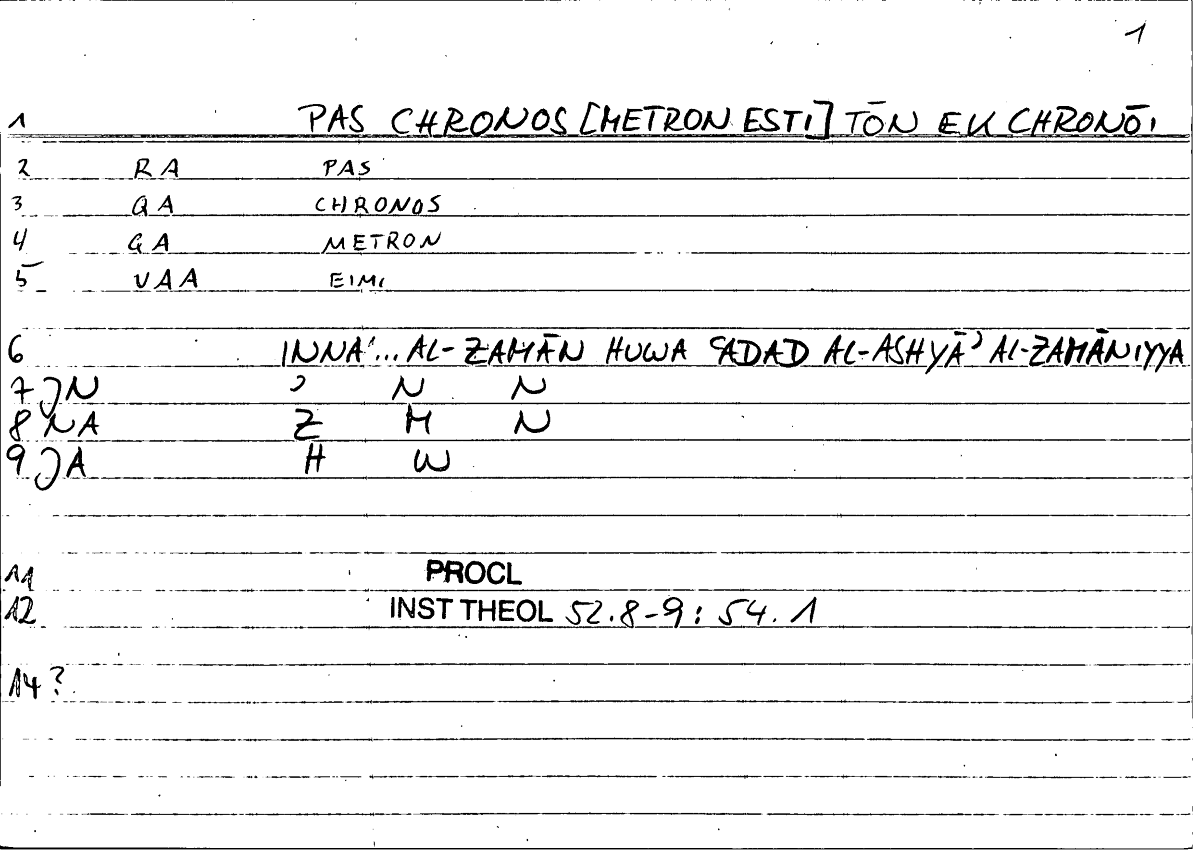 1
1 PAS CHRONOS [METRON ESTI] TŌN EN CHRONŌI
2 RA PAS
3 QA CHRONOS
4 QA METRON
5 VAA EIMI
6 INNA... AL-ZAMĀN HUWA ʿADAD AL-ASHYĀʾ AL-ZAMĀNIYYA
7 JN ʾ N N
8 NA Z M N
9 JA H W
11 PROCL
12 INST THEOL 52.8-9: 54.1
14 ?